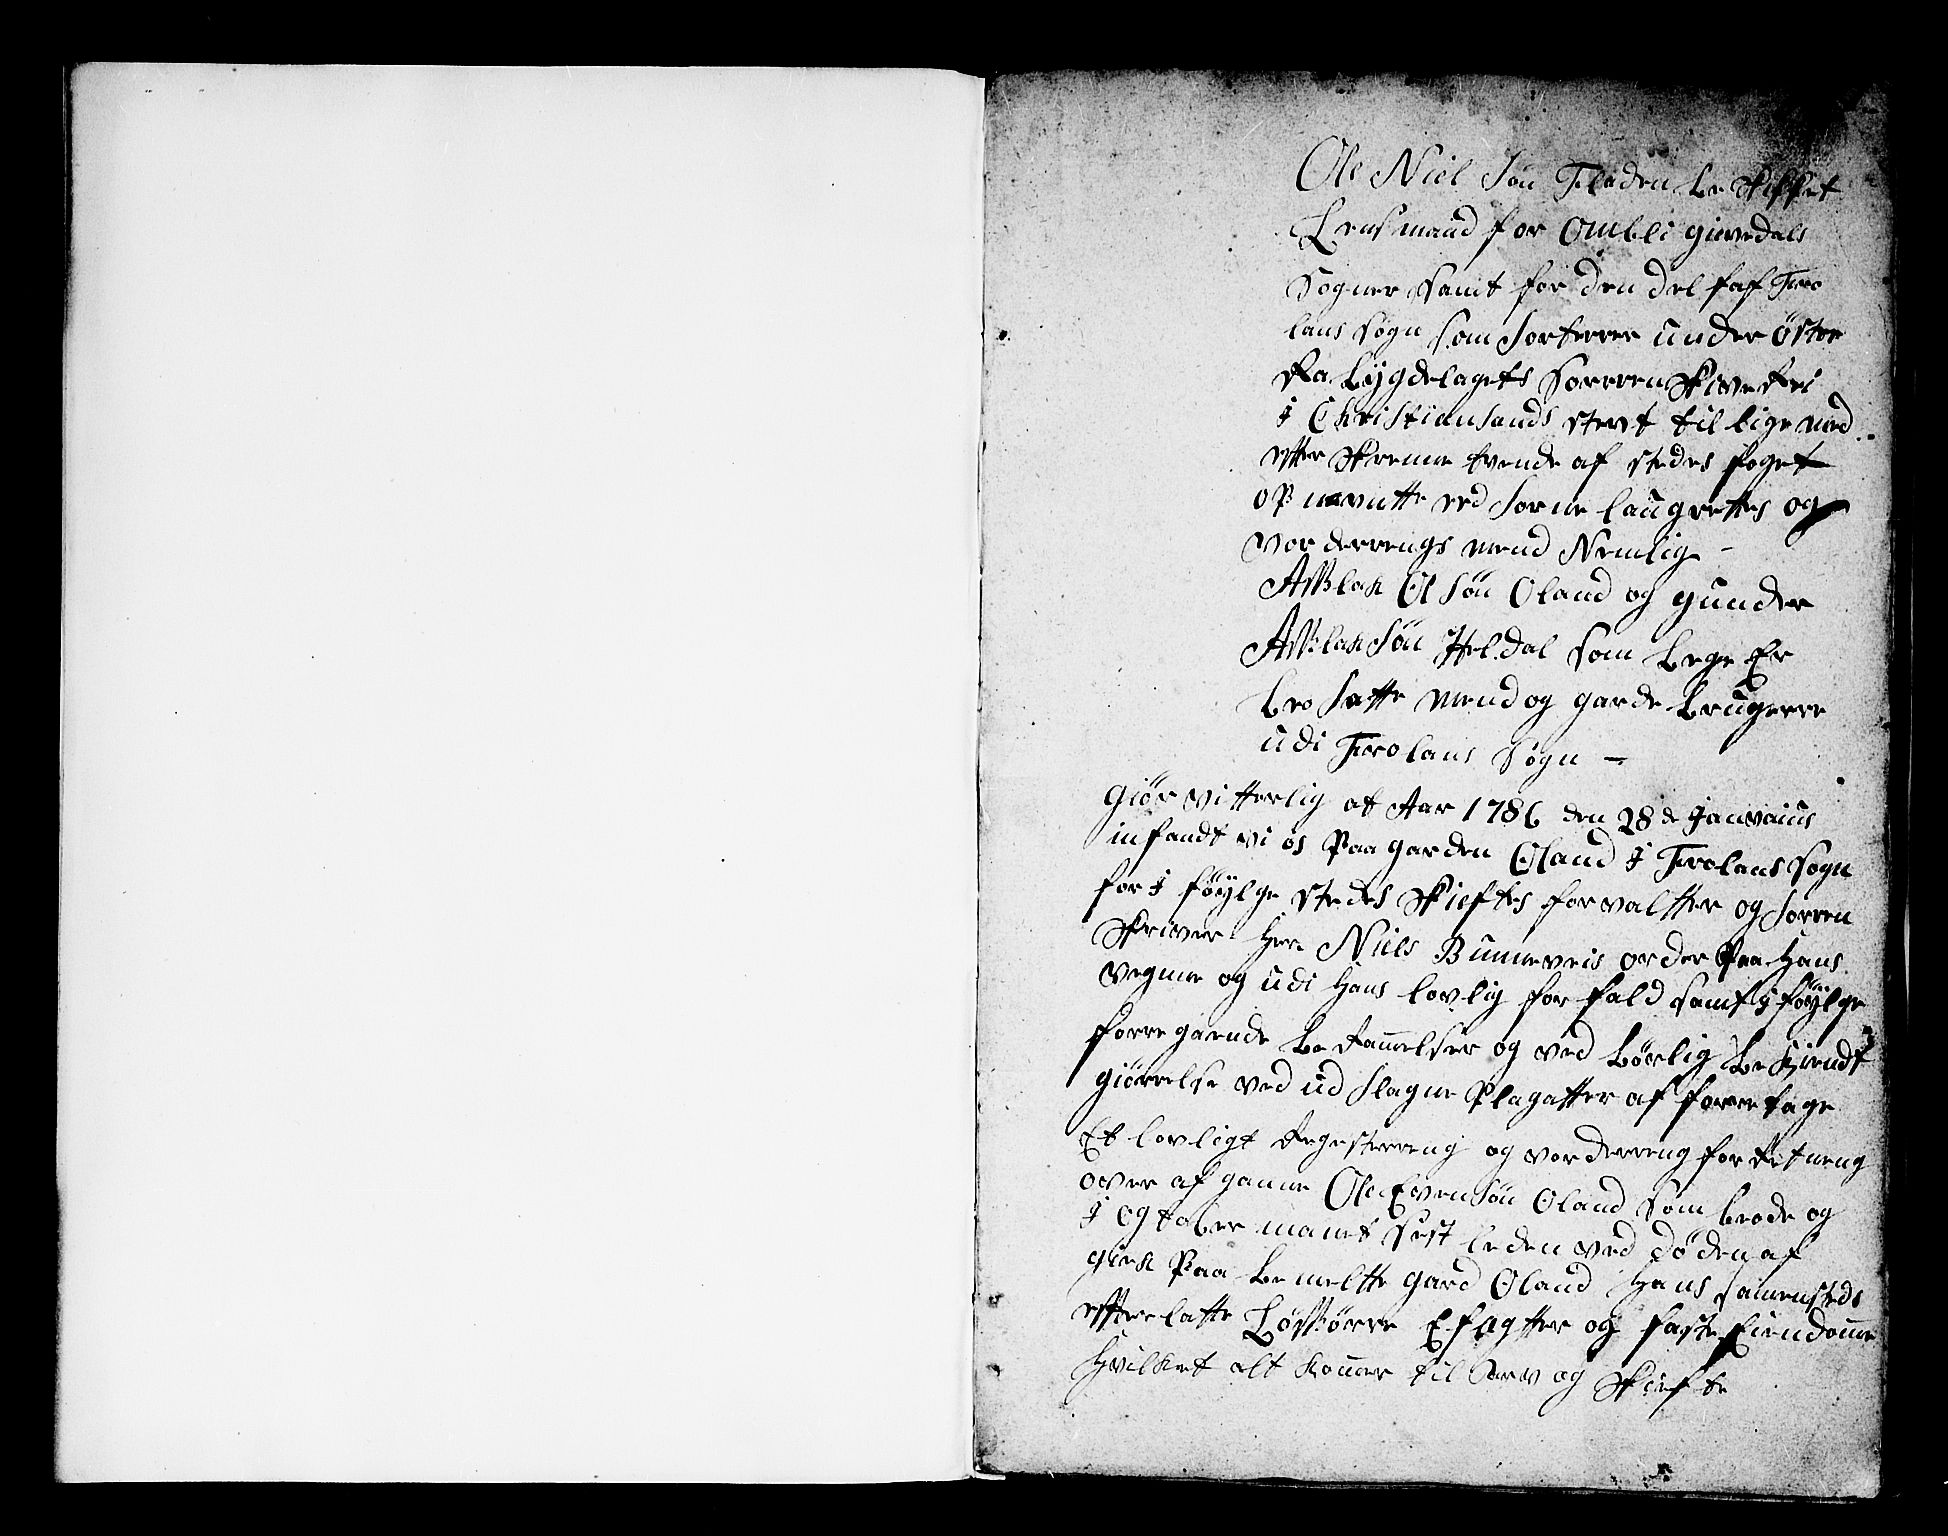 Ole Niel Søn Fladen be skikket
Lensmand for Ombli giøvedals
Sogner samt for den del af Fro
lans sogn som sorterrer under østre
Raabygdelagets sorrenskriveri
i Christiansands stevt til lige med
effter skrevne tvende af stedes foget
op nevntte eed sorne laugrettes og
vorderrengs mend Nemlig -
Asslak Ol Søn Oland og gunder
Asslak Søn Heldal som bege Er
boe satte mend og garde brugerre
udi Frolans Sogn -
giør vitterlig at Aar 1786 den 28de Janvaius
infandt vi os paa garden Oland i Frolans sogn
for i føylge stedes skieftes forvaltter og sorren
skriver Her Niels Bumeveis order paa Hans
vegne og udi Hans lovlig for fald samt i føylge
forregaende be rammelser og ved børlig be kiendt
giørrelse ved ud slagne Plagatter af forretage
Et lovligt regesterreng og vorderreng forretneng
over af gangne Ole Evensøn Oland som boede og
i ogtober manet sist leden ved døden af
giek paa be meltte gard Oland Hans samensteds
effterlatte Løssørre Efagtter og faste Eiendomme
Hvilket alt komer til Arv og skiefte